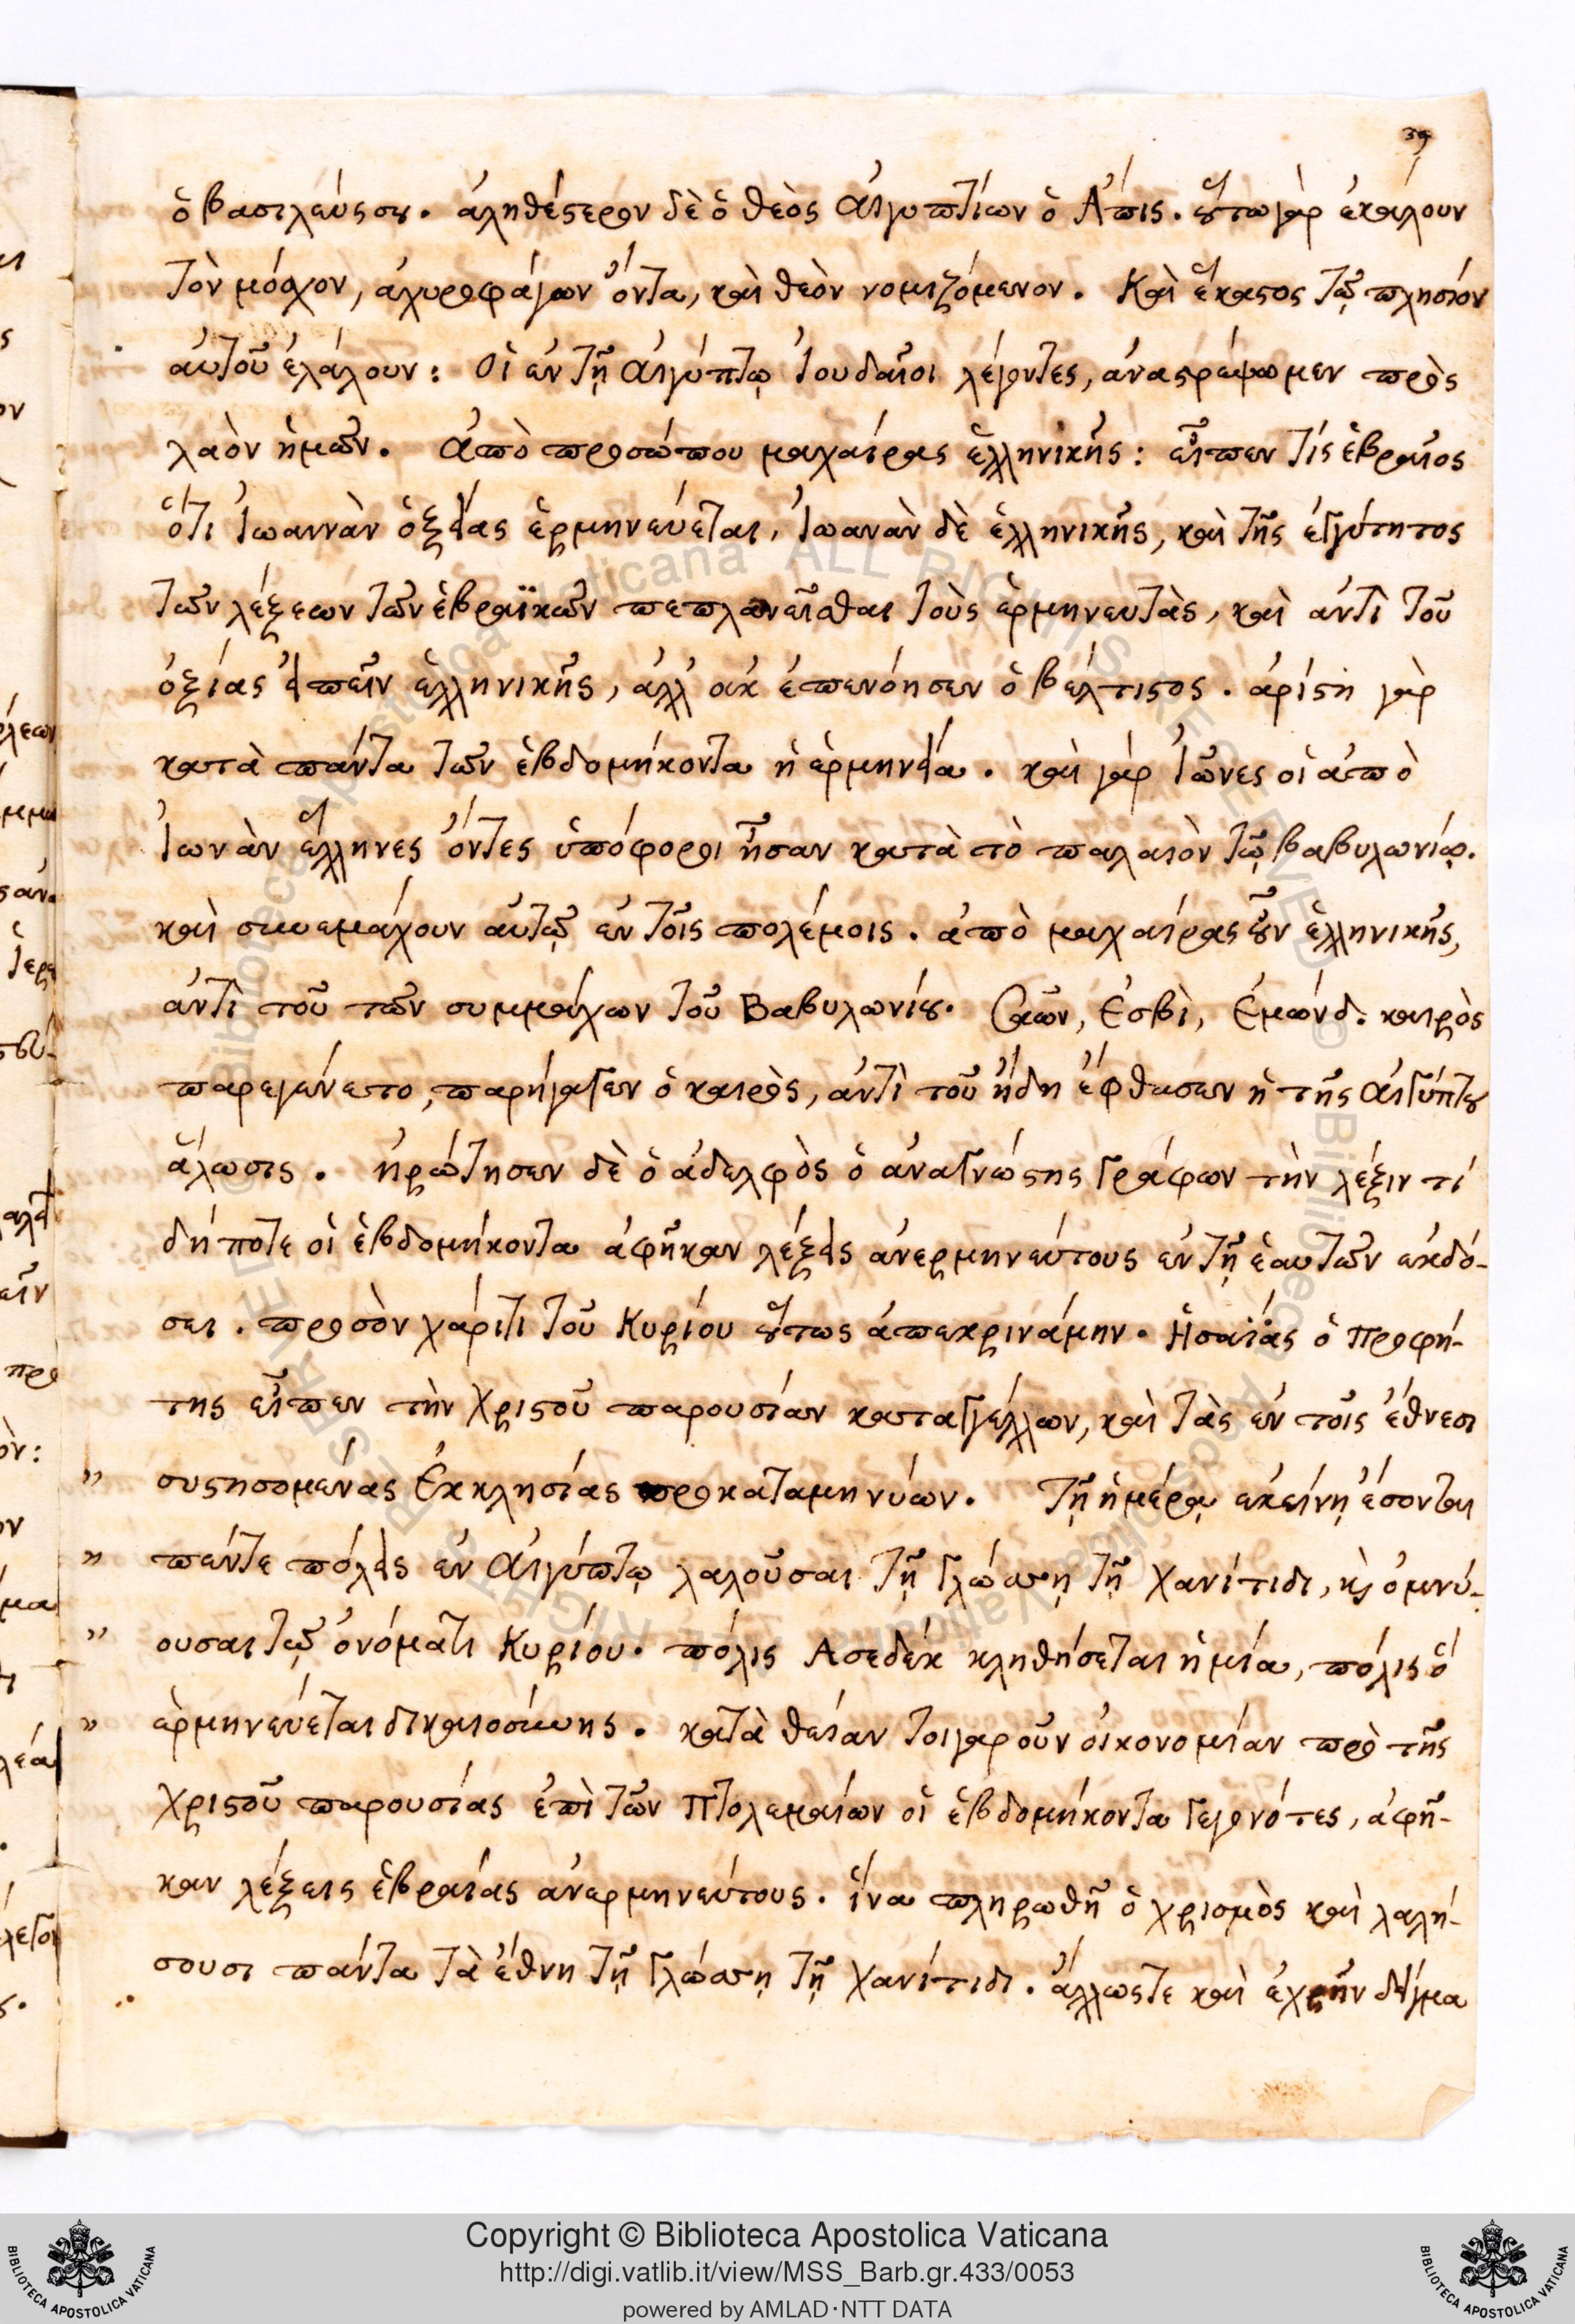 39
ὁ βασιλεύς σου. ἀληθέστερον δὲ ὁ θεὸς Αἰγυπτίων ὁ Ἄπις. οὕτω γὰρ ἐκάλουν
τὸν μόσχον, ἀχυροφάγον ὄντα, καὶ θεὸν νομιζόμενον. Καὶ ἕκαστος τῷ πλησίον
αὐτοῦ ἐλάλουν: Οἱ ἐν τῇ Αἰγύπτῳ Ἰουδαῖοι λέγοντες, ἀναστρέψωμεν πρὸς
λαὸν ἡμῶν. Ἀπὸ προσώπου μαχαίρας ἑλληνικῆς: εἶπεν τίς ἑβραῖος
ὅτι Ἰωαννὰν ὀξείας ἑρμηνεύεται, Ἰωανὰν δὲ ἑλληνικῆς, καὶ τῆς ἐγγύτητος
τῶν λέξεων τῶν ἑβραϊκῶν πεπλανεῖσθαι τοὺς ἑρμηνευτὰς, καὶ ἀντὶ τοῦ
ὀξίας εἰπεῖν ἑλληνικῆς, ἀλλ' οὐκ ἐπενόησεν ὁ βέλτιστος. ἀρίστη γὰρ
κατὰ πάντα τῶν ἑβδομήκοντα ἡ ἑρμηνεία. καὶ γὰρ Ἰῶνες οἱ ἀπὸ
Ἰωνὰν ἕλληνες ὄντες ὑπόφοροι ἦσαν κατὰ τὸ παλαιὸν τῷ βαβυλωνίῳ.
καὶ συνεμάχουν αὐτῷ ἐν τοῖς πολέμοις. ἀπὸ μαχαίρας οὖν ἑλληνικῆς,
ἀντὶ τοῦ τῶν συμμάχων τοῦ Βαβυλωνίου. Σαῶν, Ἐσβὶ, Ἐμώνδ. καιρὸς
παρεγένετο, παρήγαγεν ὁ καιρὸς, ἀντὶ τοῦ ἤδη ἔφθασεν ἡ τῆς Αἰγύπτου
ἅλωσις. ἠρώτησεν δὲ ὁ ἀδελφὸς ὁ ἀναγνώστης γράφων τὴν λέξιν τί
δήποτε οἱ ἑβδομήκοντα ἀφῆκαν λέξεις ἀνερμηνεύτους ἐν τῇ ἑαυτῶν ἐκδό-
σει. πρὸς ὃν χάριτι τοῦ Κυρίου οὕτως ἀπεκρινάμην. Ἡσαΐας ὁ προφή-
της εἶπεν τὴν Χριστοῦ παρουσίαν καταγγέλλων, καὶ τὰς ἐν τοῖς ἔθνεσι
" συστησομένας Ἐκκλησίας προκαταμηνύων. Τῇ ἡμέρᾳ ἐκείνῃ ἔσονται
" πέντε πόλεις ἐν Αἰγύπτῳ λαλοῦσαι τῇ γλώσσῃ τῇ Χανίτιδι, κὶ ὀμνύ-
" ουσαι τῷ ὀνόματι Κυρίου. πόλις Ασεδέκ κληθήσεται ἡ μία, πόλις ὅ
" ἑρμηνεύεται δικαιοσύνης. κατὰ θείαν τοιγαροῦν οἰκονομίαν πρὸ τῆς
Χριστοῦ παρουσίας ἐπὶ τῶν Πτολεμαίων οἱ ἑβδομήκοντα γεγονότες, ἀφῆ-
καν λέξεις ἑβραίας ἀνερμηνεύτους. ἵνα πληρωθῇ ὁ χρισμὸς καὶ λαλή-
σουσι πάντα τὰ ἔθνη τῇ γλώσσῃ τῇ Χανίτιδι. ἄλλωστε καὶ ἐχρῆν δεῖγμα
Copyright © Biblioteca Apostolica Vaticana
http://digi.vatlib.it/view/MSS_Barb.gr.433/0053
powered by AMLAD·NTT DATA
BIBLIOTECA APOSTOLICA VATICANA
BIBLIOTECA APOSTOLICA VATICANA